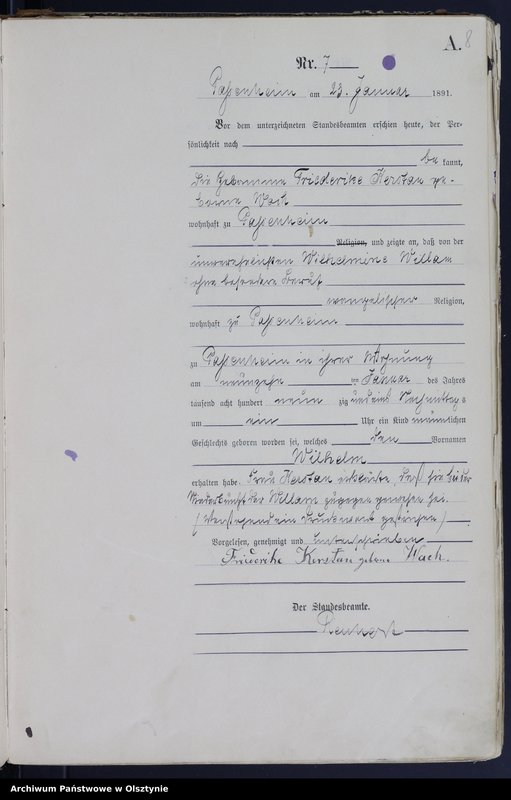 A. 8
Nr. 7
Passenheim am 23. Januar 1891.
Vor dem unterzeichneten Standesbeamten erschien heute, der Per-
sönlichkeit nach
be kannt,
die Hebamme Friederike Kerstan ge-
borene Wach
wohnhaft zu Passenheim
Religion, und zeigte an, daß von der
unverehelichten Wilhelmine Willam
ohne besonderen Beruf
evangelischer Religion,
wohnhaft zu Passenheim
zu Passenheim in ihrer Wohnung
am neunzehn ten Januar des Jahres
tausend acht hundert neun zig und eins Nachmittags
um ein Uhr ein Kind männlichen
Geschlechts geboren worden sei, welches den Vornamen
Wilhelm
erhalten habe. Frau Kerstan erklärte, daß sie bei der
Niederkunft der Willam zugegen gewesen sei.
(Vorstehend ein Druckwort gestrichen)
Vorgelesen, genehmigt und unterschrieben
Friederike Kerstan geborne Wach.
Der Standesbeamte.
Archiwum Państwowe w Olsztynie